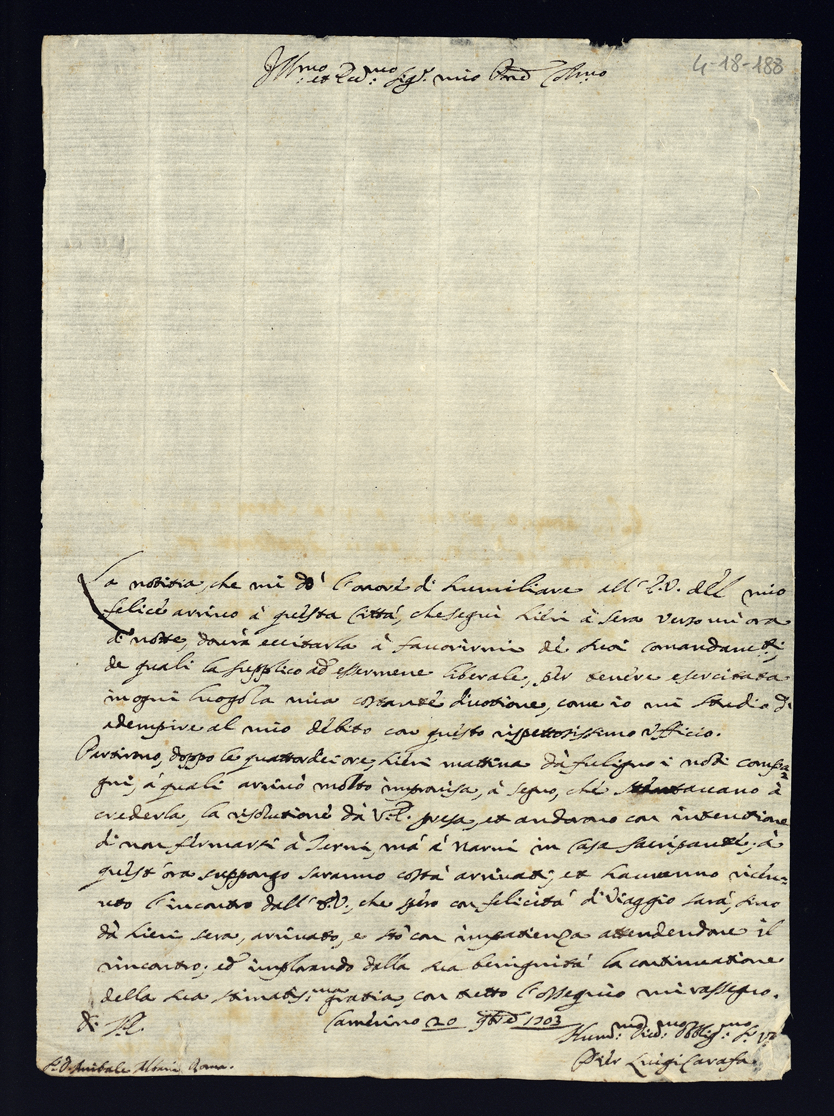 4-18-188
Ill.mo et Rev.mo Sig.r mio P.rone Col.mo
La notitia, che mi dò l'onore di humiliare all'E.V. dell mio
felice arrivo à questa Città, che seguì hieri à sera verso un'ora
di notte, dourà eccitarla à favorirmi de suoi comandam.ti,
de quali la supplico ad essermene liberale, per tenere esercitata
in ogni luogo la mia costante divotione, come io mi studio di
adempire al mio debito con questo rispettosissimo Ufficio.
Partirono, doppo le quattordeci ore, hieri mattina da fuligno i noti compa=
gni, à quali arrivò molto improvisa, à segno, che stentavano à
crederla, la risolutione da V.E. presa, et andarono con intentione
di non fermarsi à Terni, mà à Narni in Casa Sacripanti; à
quest'ora suppongo saranno costà arrivati, et hauranno riceu=
uto l'incontro dall'E.V., che spero con felicità di Viaggio sarà, sino
da hieri sera, arrivato, e stò con impatienza attendendone il
rincontro; ed implorando dalla sua benignità la continuatione
della sua stimatis.ma gratia, con tutto l'ossequio mi rassegno.
di V.E. Camerino 20 9bre 1703
Hum.mo Div.mo Obblig.mo Se.re
Pier Luigi Carafa
S.r D. Anibale Albani Roma.